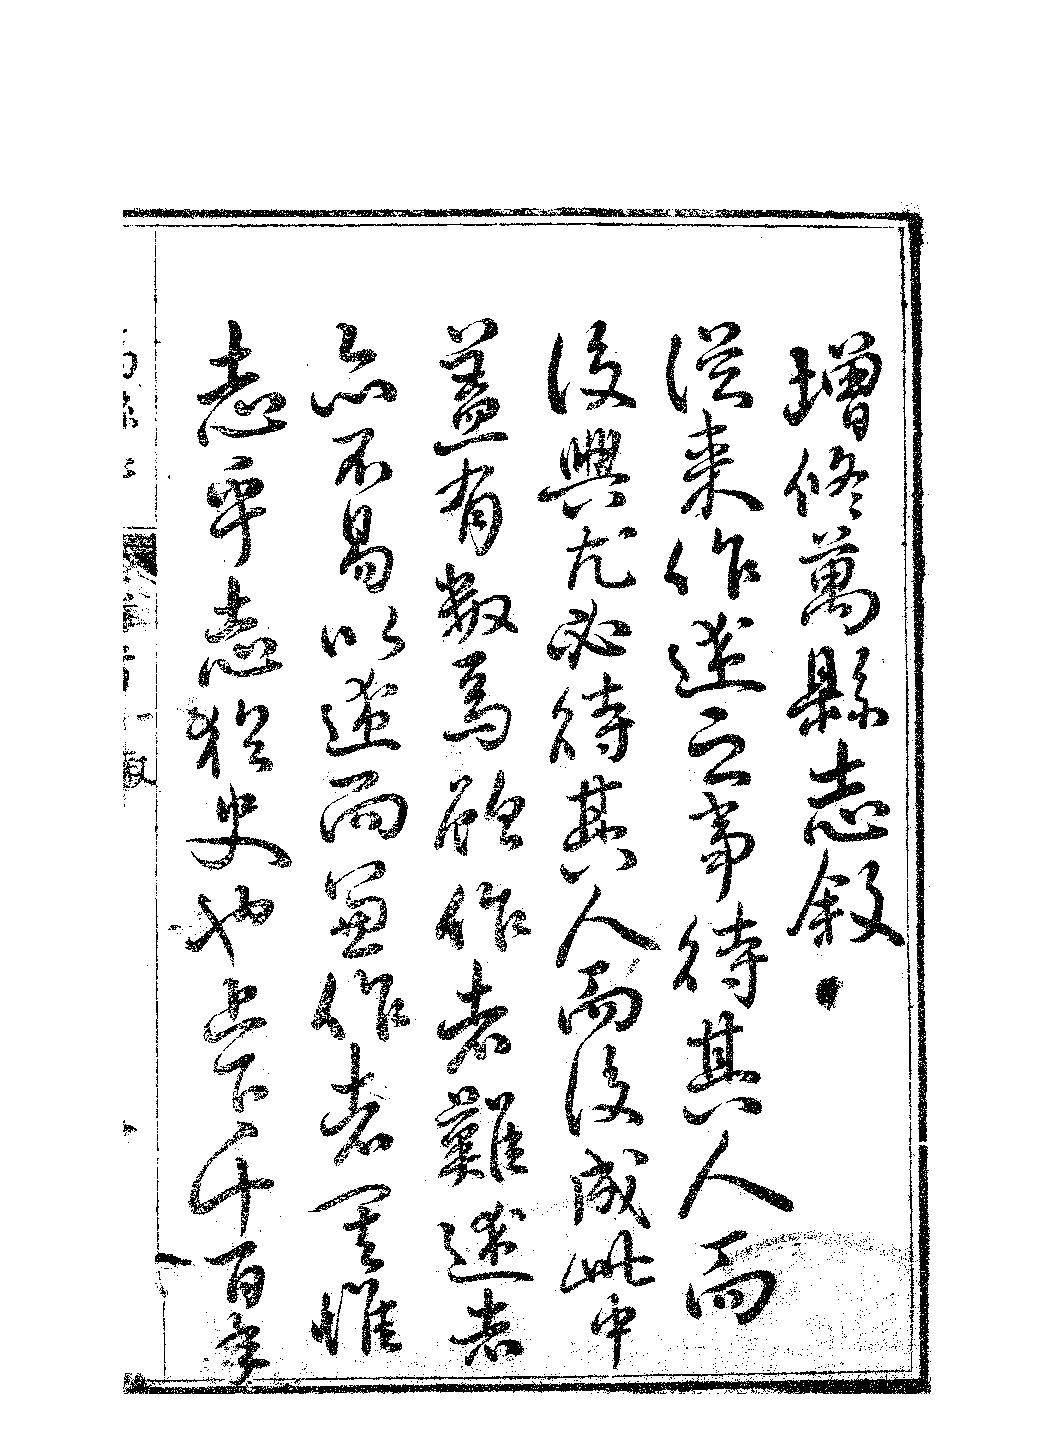 增修萬縣志敘
從来作述之事待其人而
後興尤必待其人而後成此中
蓋有數焉顧作者難述者
亦不易以述而兼作者其惟
志乎志猶史也上下千百年